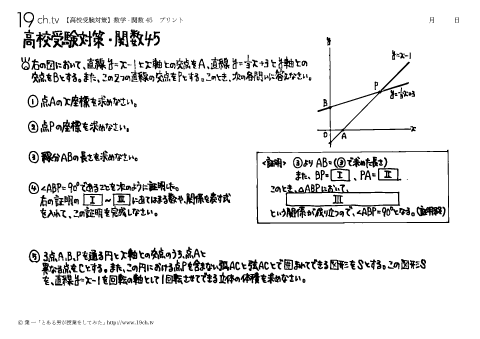 19ch.tv 【高校受験対策】数学 - 関数45 プリント 月 日
高校受験対策・関数45
右の図において、直線y=x-1とx軸との交点をA、直線y=1/3x+3とy軸との
交点をBとする。また、この2つの直線の交点をPとする。このとき、次の各問いに答えなさい。
①点Aのx座標を求めなさい。
②点Pの座標を求めなさい。
③線分ABの長さを求めなさい。
④∠ABP=90°であることを次のように証明した。
右の証明の I ~ III にあてはまる数や、関係を表す式
を入れて、この証明を完成しなさい。
y
y=x-1
P
y=1/3x+3
B
O
A
x
<証明> ③より AB=(③で求めた長さ)
また、BP= I 、PA= II
このとき、△ABPにおいて、
III
という関係が成り立つので、∠ABP=90°となる。(証明終)
⑤3点A、B、Pを通る円とx軸との交点のうち、点Aと
異なる点をCとする。また、この円における点Pを含まない弧ACと弦ACとで囲まれてできる図形をSとする。この図形S
を、直線y=x-1を回転の軸として1回転させてできる立体の体積を求めなさい。
© 第一「とある男が授業をしてみた」http://www.19ch.tv